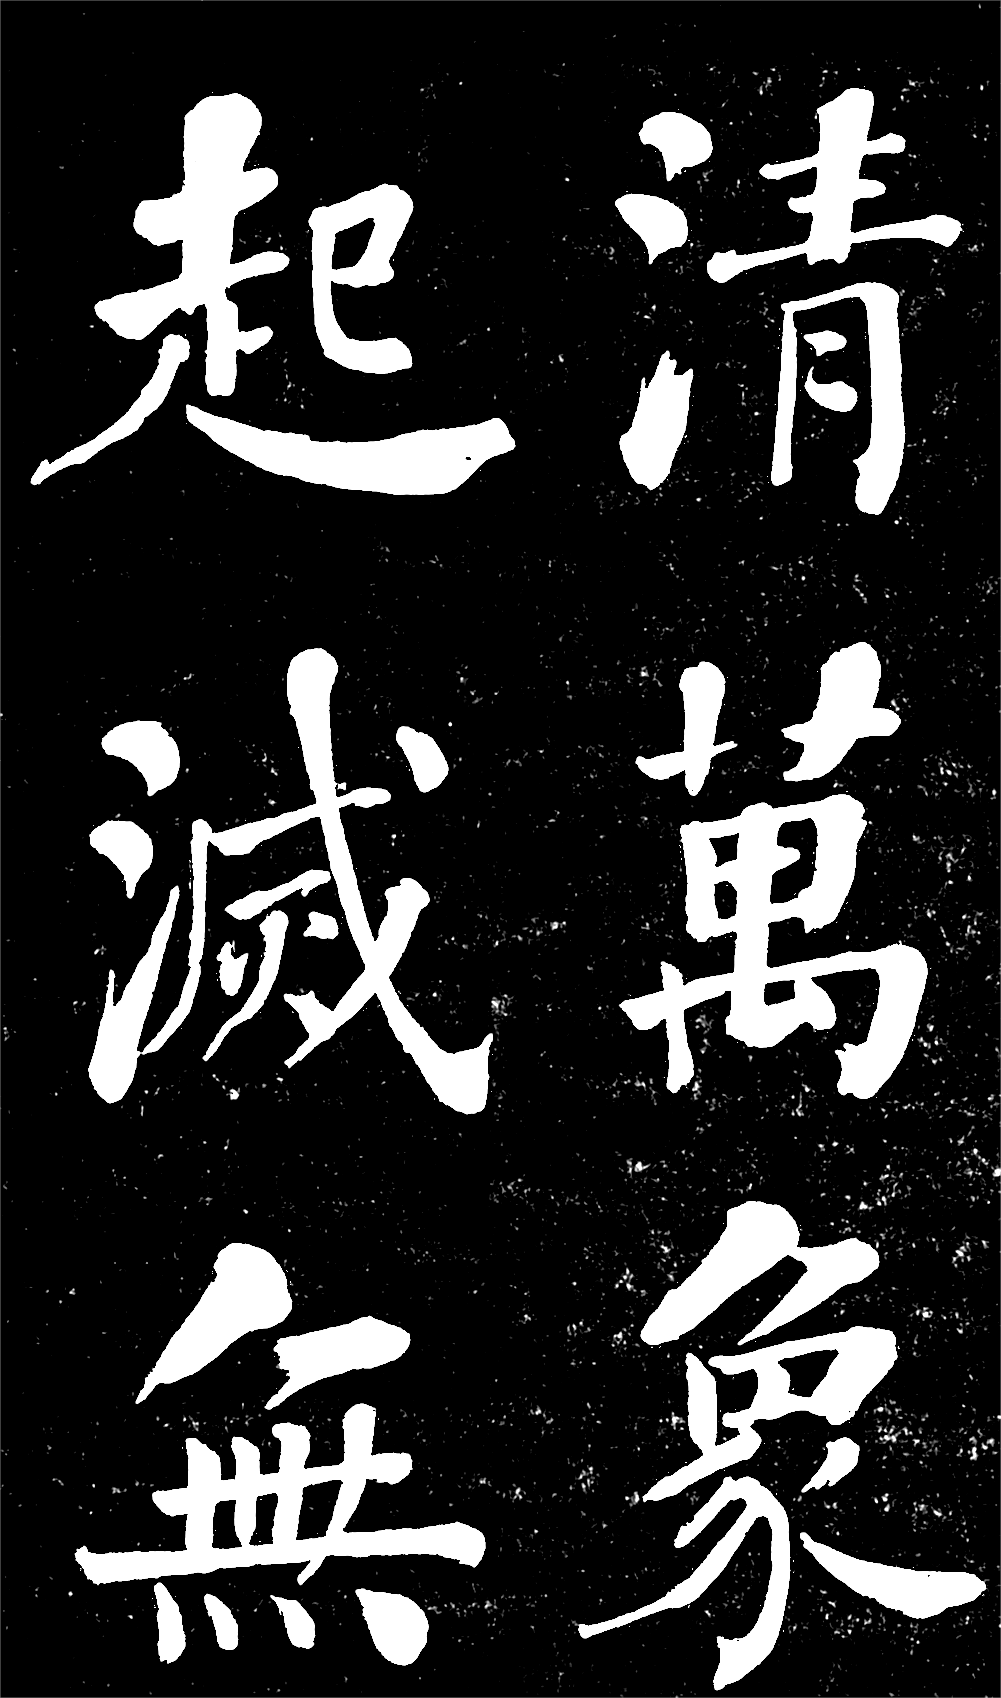 清萬象
起滅無